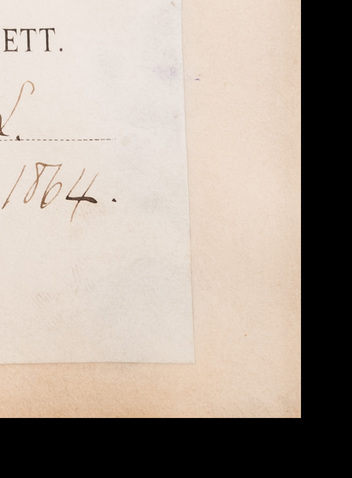 ETT.
L.
1864.